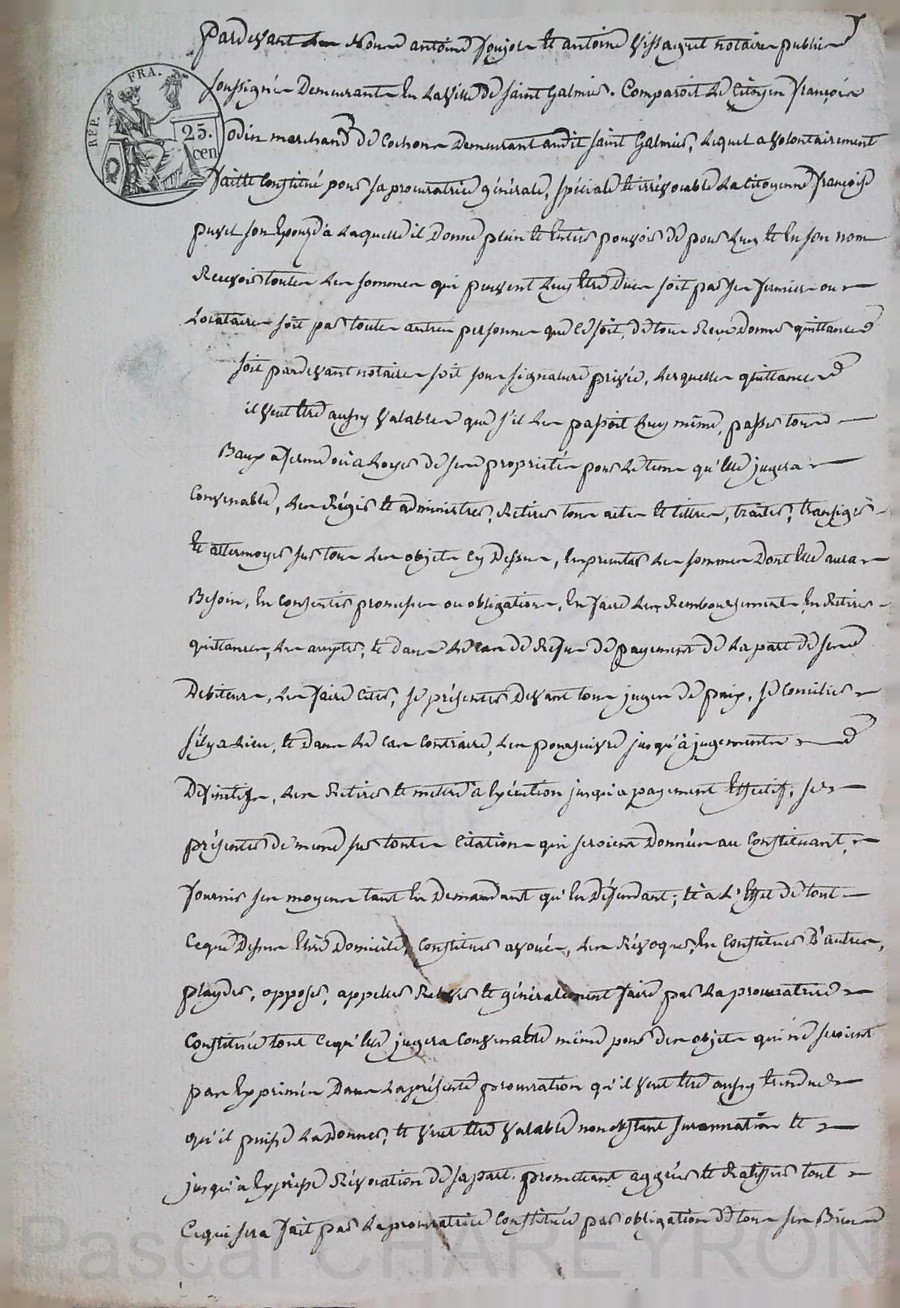 Pardevant Nous antoine et antoine Vissaguet notaires publics
soussignés Demeurants En La Ville de Saint Galmier. Comparoit Le Citoyen françois
odin marchand de Cochons Demeurant audit Saint Galmier, Lequel a volontairement
fait et Constitué pour sa procuratrice générale, spéciale et irrévocable La Citoyenne françoise
puyet son Epouse a Laquelle il Donne plein et Entier pouvoir de pour Luy et En son nom
Recevoir toutes Les sommes qui peuvent Luy être Dues soit par ses fermiers ou
Locataires soit par toutes autres personnes que ce soit, de tous Reçus Donner quittances
soit pardevant notaires soit sous signature privée, Lesquelles quittances
il veut être aussy valables que s'il Les passoit Luy même, passer tous
Baux a ferme ou a Loyer de ses propriétés pour Le tems qu'Elle jugera
Convenable, Les Régir et administrer, Retirer tous actes et tittres, traiter, transiger
et attermoyer sur tous Les objets cy Dessus, Emprunter Les sommes Dont Elle aura
Besoin, En Consentir promesses ou obligations, En faire Les Remboursements En Retirer
quittances, Les accepter, et dans Le Cas de Refus de payement de La part de ses
Debiteurs, Les faire Citer, se présenter Devant tous juges de paix, se Concilier
s'il y a Lieu, et dans Le Cas Contraire, Les poursuivre jusqu'à jugements
Definitifs, Les Retirer et mettre a Exécution jusqu'a payement Effectif, se
présenter de même sur toutes Citations qui seroient Données au Constituant,
fournir ses moyens tant En Demandant qu'En Défendant; et à L'Effet de tout
Ceque Dessus Elire Domicile, Constituer avoués, Les Révoquer, En Constituer D'autres,
playder, opposer, appeller et généralement faire par La procuratrice
Constituée tout Cequ'Elle jugera Convenable même pour des objets qui ne seroient
pas Exprimés Dans La présente procuration qu'il veut être aussy Etendue
qu'il puisse La Donner, et veut être valable nonobstant surannation et
jusqu'a Expresse Révocation de sa part. promettant aggréer et Ratiffier tout
Cequi sera fait par La procuratrice Constituée par obligation de tous ses Biens
REP. FRA.
25.
cen
Pascal CHAREYRON